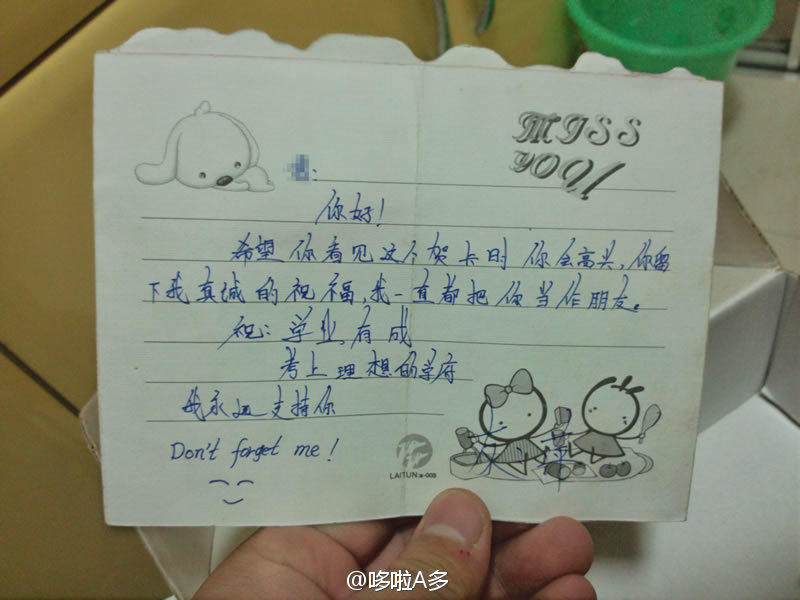 MISS
YOU!
:
你好!
希望你看见这个贺卡时你会高兴,你留
下我真诚的祝福,我一直都把你当作朋友。
祝:学业有成
考上理想的学府
我永远支持你
Don't forget me!
LAITUN:a-005
@哆啦A多